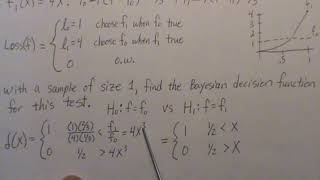 f₁(x) = 4x³
Loss(f) = { l₀=1 choose f₁ when f₀ true
l₁=4 choose f₀ when f₁ true
0 o.w.
1
.5 1
with a sample of size 1, find the Bayesian decision function
for this test. H₀: f=f₀ vs H₁: f=f₁
δ(x) = { 1 (1)(⅓)/(4)(⅔) < f₁/f₀ = 4x³ = { 1 ½ < x
0 ½ > 4x³ 0 ½ > x